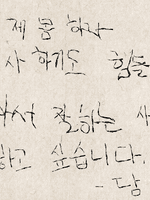 제 몸 하나
사 하기도 힘들
서 잘하는 사
하고 싶습니다.
- 담